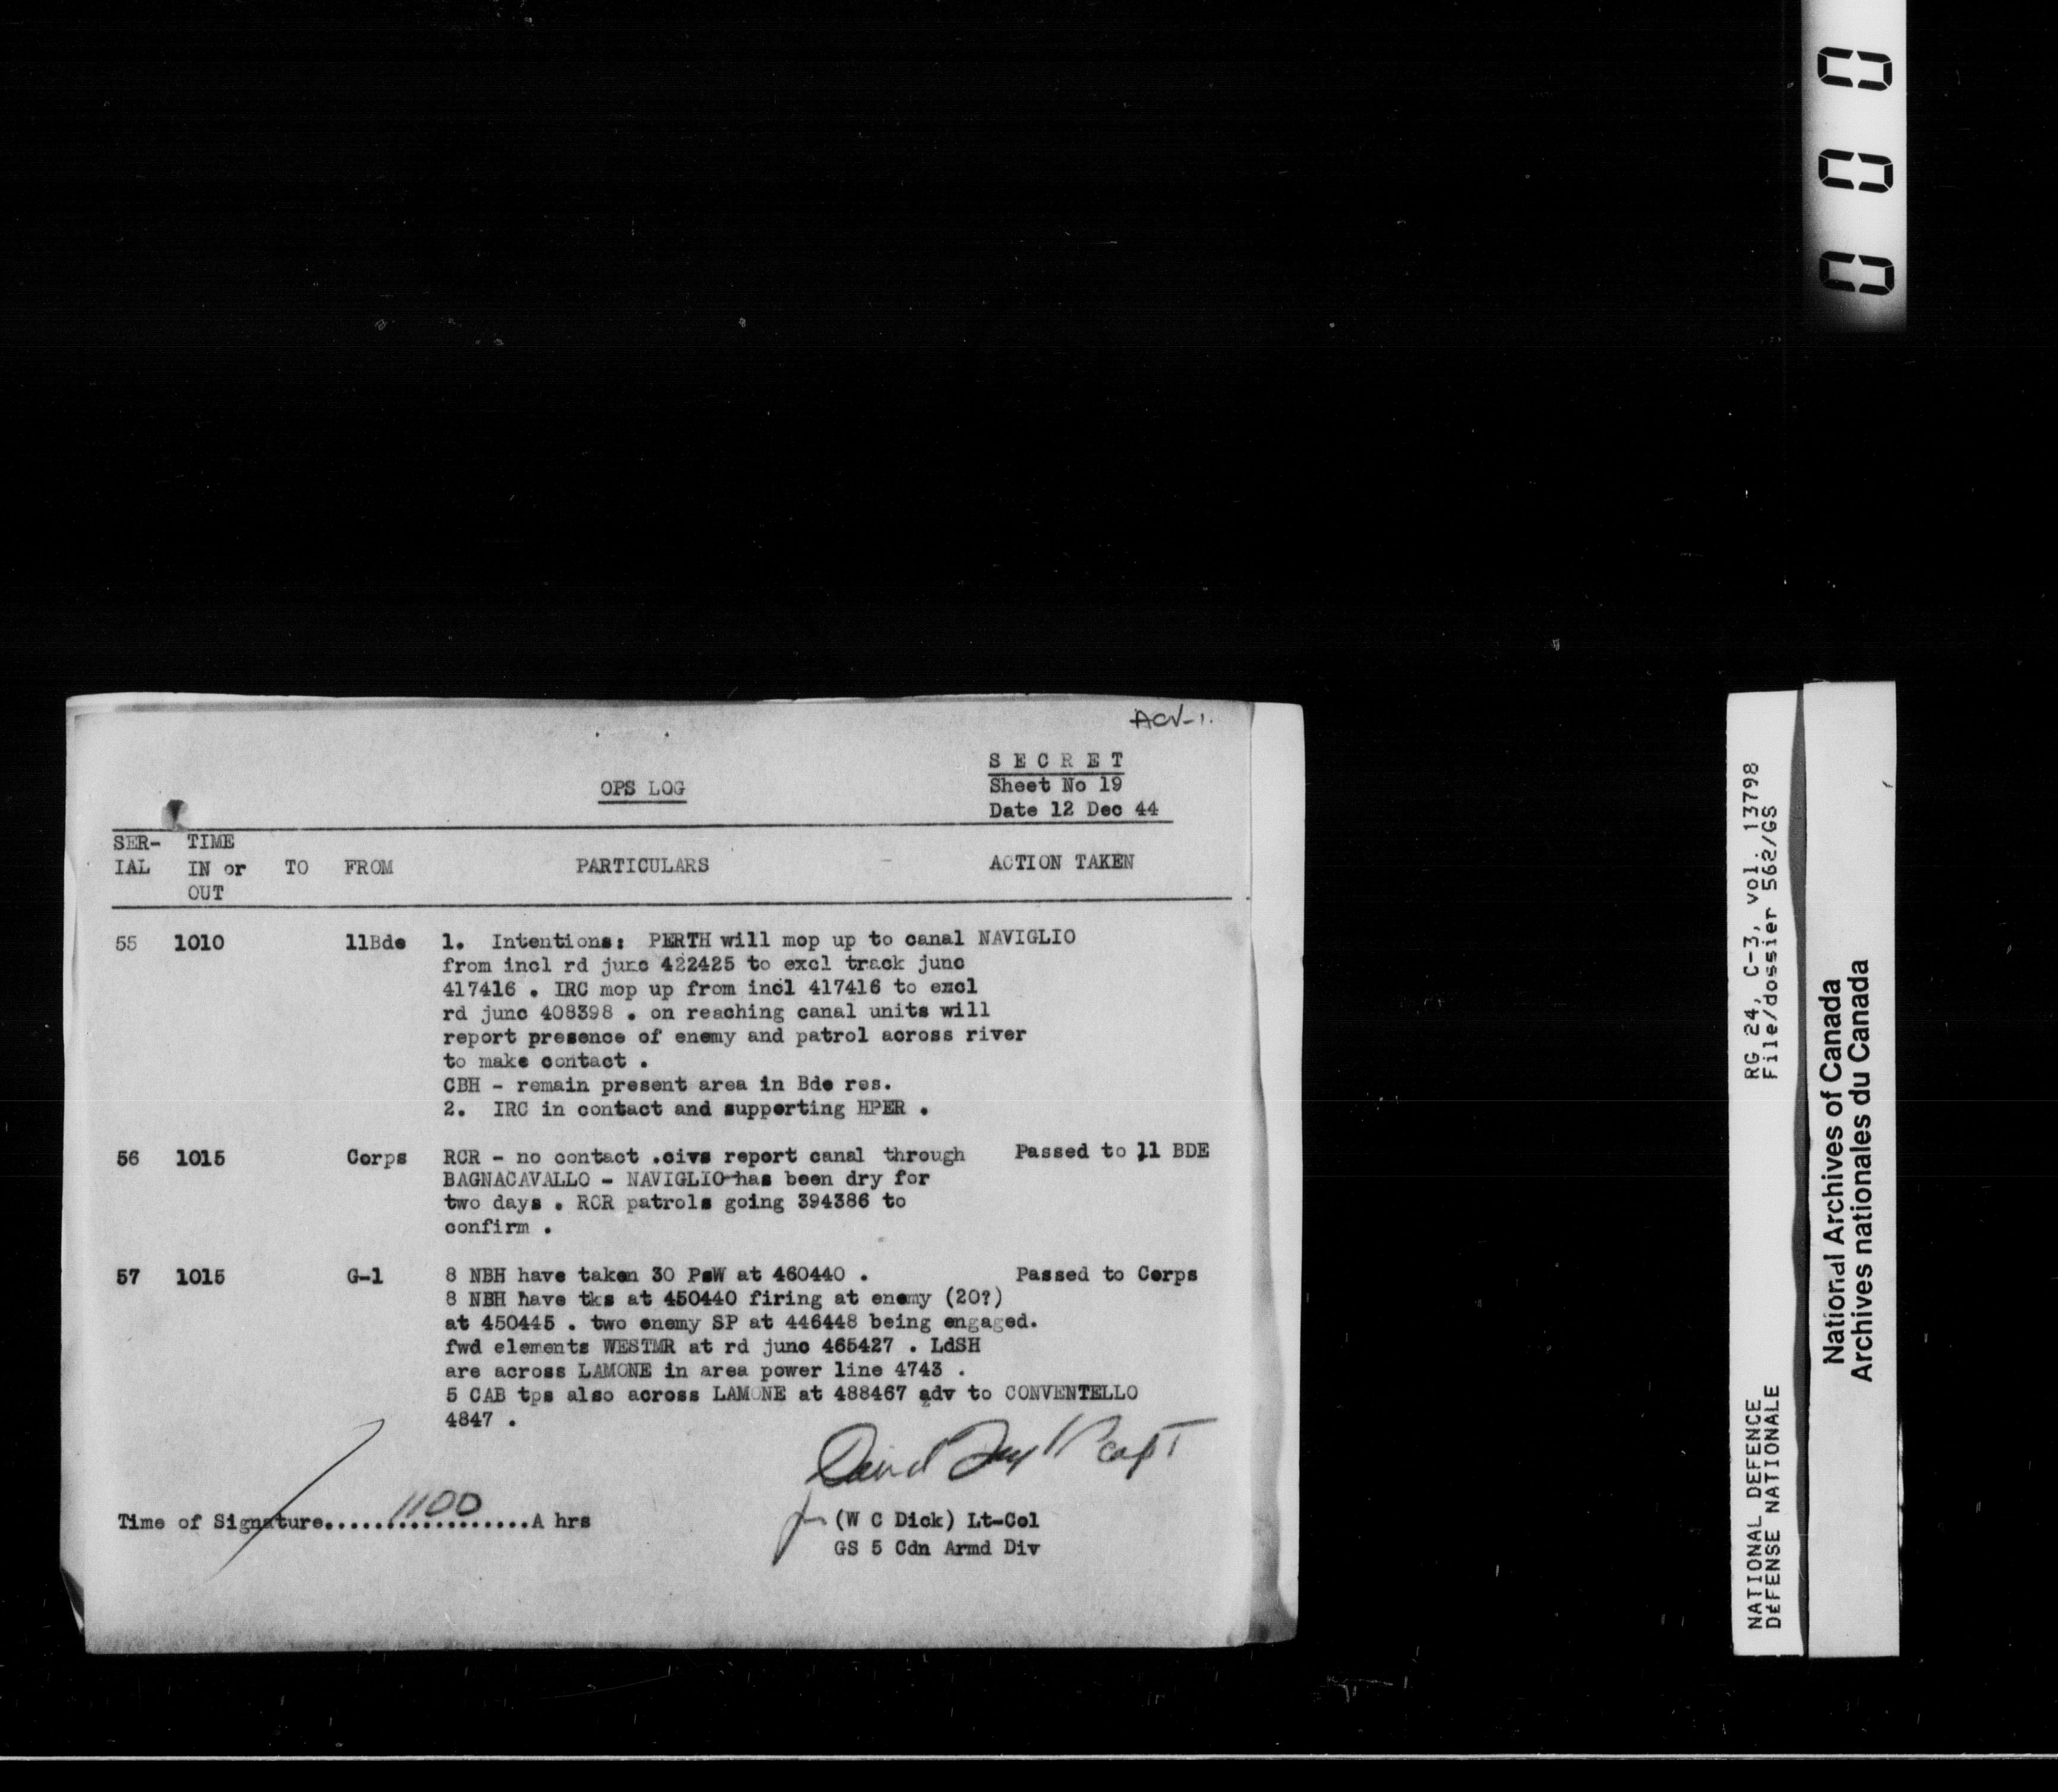 ACV-1.
S E C R E T
OPS LOG
Sheet No 19
Date 12 Dec 44
SER- TIME
IAL IN or TO FROM PARTICULARS ACTION TAKEN
OUT
55 1010 11Bde 1. Intentions: PERTH will mop up to canal NAVIGLIO
from incl rd junc 422425 to excl track junc
417416 . IRC mop up from incl 417416 to excl
rd junc 408398 . on reaching canal units will
report presence of enemy and patrol across river
to make contact .
CBH - remain present area in Bde res.
2. IRC in contact and supporting HPER .
56 1015 Corps RCR - no contact .civs report canal through Passed to 11 BDE
BAGNACAVALLO - NAVIGLIO has been dry for
two days . RCR patrols going 394386 to
confirm .
57 1015 G-1 8 NBH have taken 30 PsW at 460440 . Passed to Corps
8 NBH have tks at 450440 firing at enemy (20?)
at 450445 . two enemy SP at 446448 being engaged.
fwd elements WESTMR at rd junc 465427 . LdSH
are across LAMONE in area power line 4743 .
5 CAB tps also across LAMONE at 488467 adv to CONVENTELLO
4847 .
David Capt
Time of Signature..................A hrs
1100
for (W C Dick) Lt-Col
GS 5 Cdn Armd Div
000
RG 24, C-3, vol. 13798
File/dossier 562/GS
NATIONAL DEFENCE
DÉFENSE NATIONALE
National Archives of Canada
Archives nationales du Canada